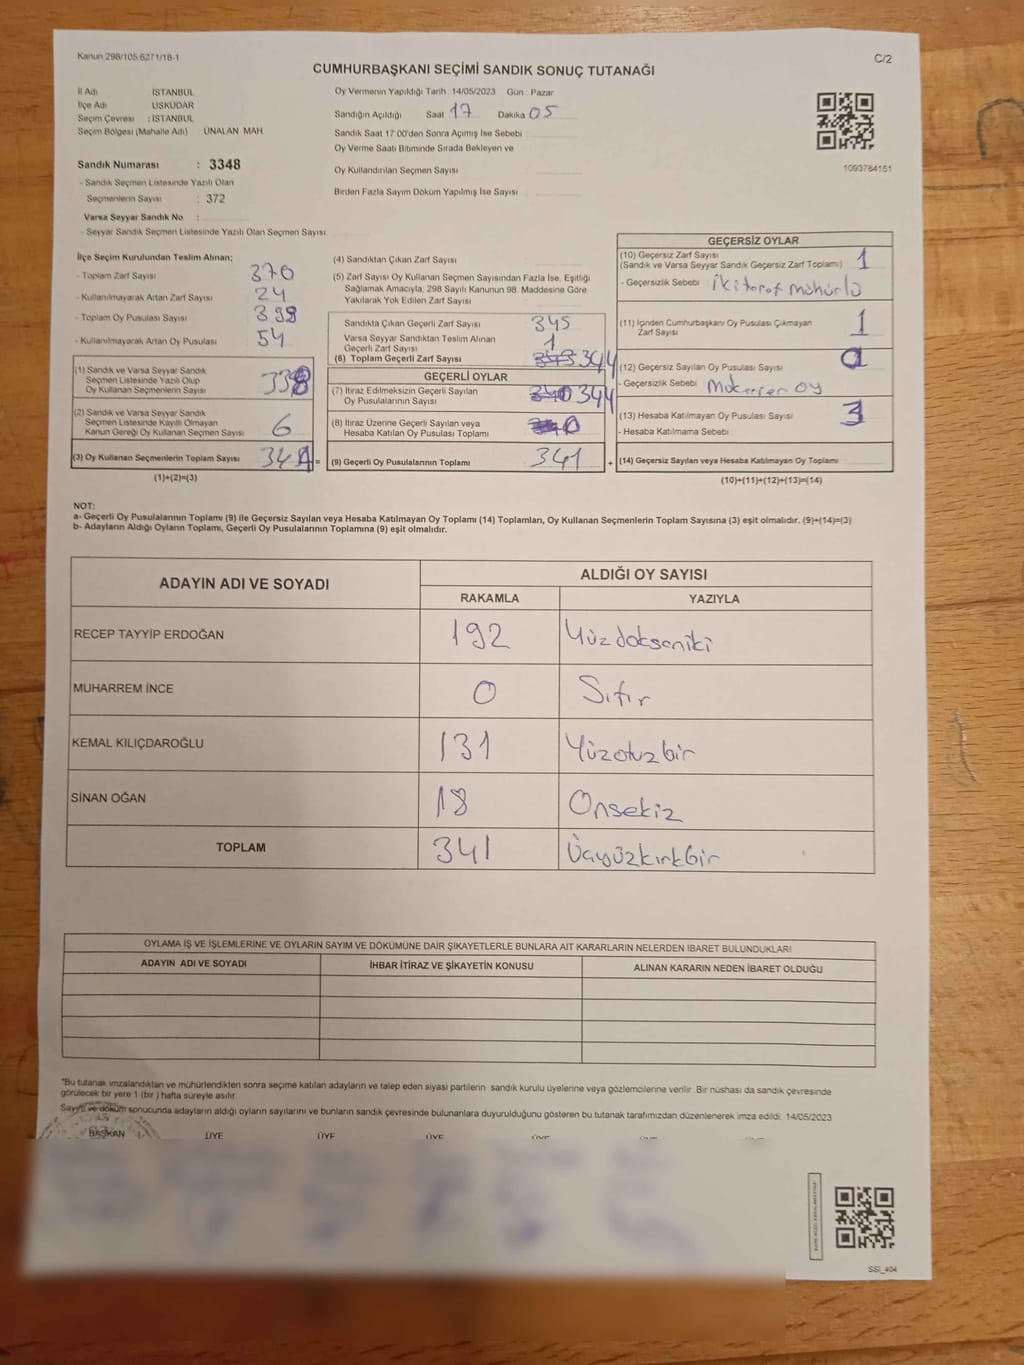 Kanun 298/105 6271/18-1
C/2
CUMHURBAŞKANI SEÇİMİ SANDIK SONUÇ TUTANAĞI
İl Adı İSTANBUL
İlçe Adı ÜSKÜDAR
Seçim Çevresi : İSTANBUL
Seçim Bölgesi (Mahalle Adı) : ÜNALAN MAH
Sandık Numarası : 3348
- Sandık Seçmen Listesinde Yazılı Olan
Seçmenlerin Sayısı : 372
Varsa Seyyar Sandık No :
- Seyyar Sandık Seçmen Listesinde Yazılı Olan Seçmen Sayısı
Oy Vermenin Yapıldığı Tarih : 14/05/2023 Gün : Pazar
Sandığın Açıldığı Saat 17 Dakika 05
Sandık Saat 17 00'den Sonra Açımış İse Sebebi
Oy Verme Saati Bitiminde Sırada Bekleyen ve
Oy Kullandırılan Seçmen Sayısı
Birden Fazla Sayım Döküm Yapılmış İse Sayısı
1093784151
İlçe Seçim Kurulundan Teslim Alınan;
- Toplam Zarf Sayısı 370
- Kullanılmayarak Artan Zarf Sayısı 24
- Toplam Oy Pusulası Sayısı 398
- Kullanılmayarak Artan Oy Pusulası 54
(1) Sandık ve Varsa Seyyar Sandık
Seçmen Listesinde Yazılı Olup
Oy Kullanan Seçmenlerin Sayısı 338
(2) Sandık ve Varsa Seyyar Sandık
Seçmen Listesinde Kayıtlı Olmayan
Kanun Gereği Oy Kullanan Seçmen Sayısı 6
(3) Oy Kullanan Seçmenlerin Toplam Sayısı 344 =
(1)+(2)=(3)
(4) Sandıktan Çıkan Zarf Sayısı
(5) Zarf Sayısı Oy Kullanan Seçmen Sayısından Fazla İse, Eşitliği
Sağlamak Amacıyla; 298 Sayılı Kanunun 98. Maddesine Göre
Yakılarak Yok Edilen Zarf Sayısı
Sandıkta Çıkan Geçerli Zarf Sayısı 345
Varsa Seyyar Sandıktan Teslim Alınan
Geçerli Zarf Sayısı 1
(6) Toplam Geçerli Zarf Sayısı 344
GEÇERLİ OYLAR
(7) İtiraz Edilmeksizin Geçerli Sayılan
Oy Pusulalarının Sayısı 344
(8) İtiraz Üzerine Geçerli Sayılan veya
Hesaba Katılan Oy Pusulası Toplamı 0
(9) Geçerli Oy Pusulalarının Toplamı 341 +
GEÇERSİZ OYLAR
(10) Geçersiz Zarf Sayısı
(Sandık ve Varsa Seyyar Sandık Geçersiz Zarf Toplamı) 1
- Geçersizlik Sebebi İki taraf mühürlü
(11) İçinden Cumhurbaşkanı Oy Pusulası Çıkmayan
Zarf Sayısı 1
(12) Geçersiz Sayılan Oy Pusulası Sayısı
- Geçersizlik Sebebi Mükerrer oy
(13) Hesaba Katılmayan Oy Pusulası Sayısı 3
- Hesaba Katılmama Sebebi
(14) Geçersiz Sayılan veya Hesaba Katılmayan Oy Toplamı
(10)+(11)+(12)+(13)=(14)
NOT:
a- Geçerli Oy Pusulalarının Toplamı (9) ile Geçersiz Sayılan veya Hesaba Katılmayan Oy Toplamı (14) Toplamları, Oy Kullanan Seçmenlerin Toplam Sayısına (3) eşit olmalıdır. (9)+(14)=(3)
b- Adayların Aldığı Oyların Toplamı, Geçerli Oy Pusulalarının Toplamına (9) eşit olmalıdır.
ADAYIN ADI VE SOYADI ALDIĞI OY SAYISI
RAKAMLA YAZIYLA
RECEP TAYYİP ERDOĞAN 192 Yüzdoksaniki
MUHARREM İNCE 0 Sıfır
KEMAL KILIÇDAROĞLU 131 Yüzotuzbir
SİNAN OĞAN 18 Onsekiz
TOPLAM 341 Üçyüzkırkbir
OYLAMA İŞ VE İŞLEMLERİNE VE OYLARIN SAYIM VE DÖKÜMÜNE DAİR ŞİKAYETLERLE BUNLARA AİT KARARLARIN NELERDEN İBARET BULUNDUKLARI
ADAYIN ADI VE SOYADI İHBAR İTİRAZ VE ŞİKAYETİN KONUSU ALINAN KARARIN NEDEN İBARET OLDUĞU
"Bu tutanak imzalandıktan ve mühürlendikten sonra seçime katılan adayların ve talep eden siyasi partilerin sandık kurulu üyelerine veya gözlemcilerine verilir. Bir nüshası da sandık çevresinde
görülecek bir yere 1 (bir ) hafta süreyle asılır.
Sayım ve döküm sonucunda adayların aldığı oyların sayılarını ve bunların sandık çevresinde bulunanlara duyurulduğunu gösteren bu tutanak tarafımızdan düzenlenerek imza edildi. 14/05/2023
BAŞKAN ÜYE ÜYE ÜYE ÜYE ÜYE
SSI_404